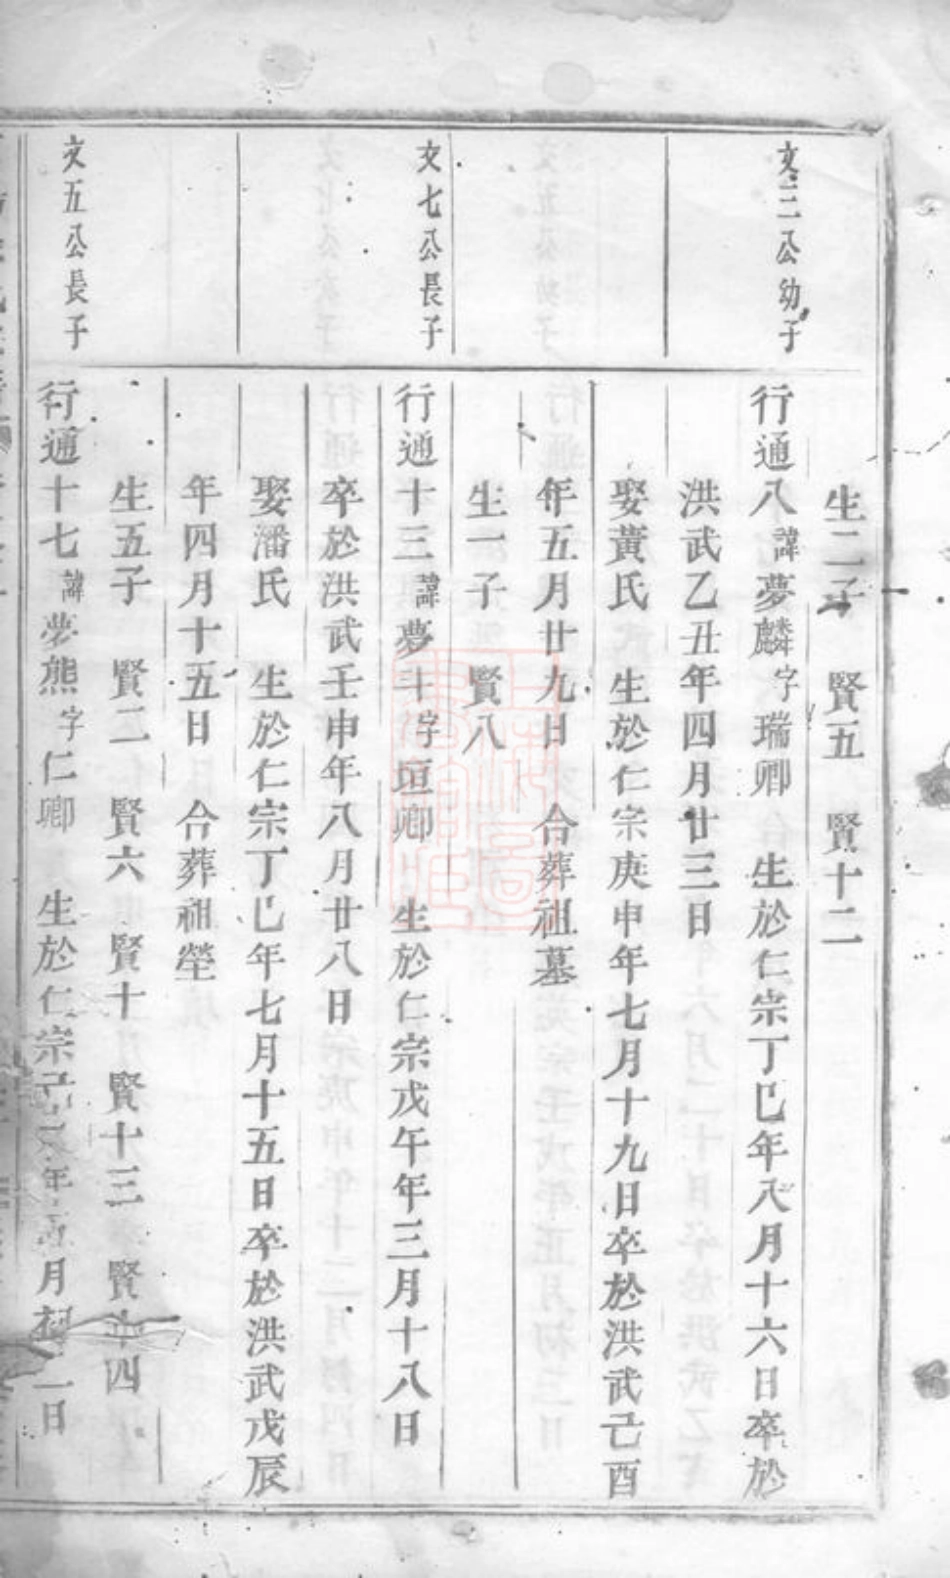 生二子　賢五　賢十二
文三公幼子
行通八諱夢麟字瑞卿　生於仁宗丁巳年八月十六日卒於
洪武乙丑年四月廿三日
娶黃氏　生於仁宗庚申年七月十九日卒於洪武己酉
年五月廿九日　合葬祖墓
生一子　賢八
文七公長子
行通十三諱夢斗字垣卿　生於仁宗戊午年三月十八日
卒於洪武壬申年八月廿八日
娶潘氏　生於仁宗丁巳年七月十五日卒於洪武戊辰
年四月十五日　合葬祖塋
生五子　賢二　賢六　賢十　賢十三　賢十四
文五公長子
行通十七諱夢熊字仁卿　生於仁宗己年月初一日